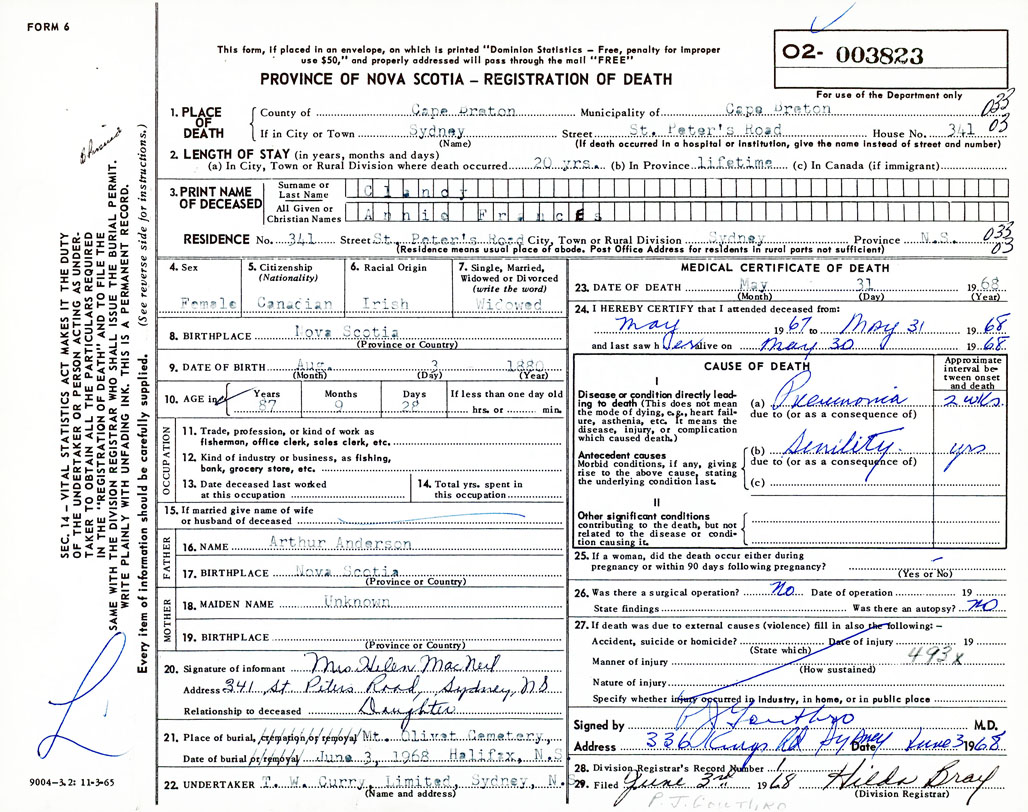 FORM 6
This form, if placed in an envelope, on which is printed "Dominion Statistics – Free, penalty for improper
use $50," and properly addressed will pass through the mail "FREE"
PROVINCE OF NOVA SCOTIA – REGISTRATION OF DEATH
O2- 003823
For use of the Department only
1. PLACE OF DEATH
County of Cape Breton Municipality of Cape Breton 033
If in City or Town Sydney Street St. Peter's Road House No. 341 03
(Name) (If death occurred in a hospital or institution, give the name instead of street and number)
2. LENGTH OF STAY (in years, months and days)
(a) In City, Town or Rural Division where death occurred 20 yrs. (b) In Province lifetime (c) In Canada (if immigrant)
3. PRINT NAME OF DECEASED
Surname or Last Name Clandy
All Given or Christian Names Annie Frances
RESIDENCE No. 341 Street St. Peter's Road City, Town or Rural Division Sydney Province N.S. 033
(Residence means usual place of abode. Post Office Address for residents in rural parts not sufficient) 03
4. Sex
Female
5. Citizenship
(Nationality)
Canadian
6. Racial Origin
Irish
7. Single, Married,
Widowed or Divorced
(write the word)
Widowed
8. BIRTHPLACE Nova Scotia
(Province or Country)
9. DATE OF BIRTH Aug. 3 1880
(Month) (Day) (Year)
10. AGE in Years Months Days If less than one day old
87 9 28 hrs. or min.
OCCUPATION
11. Trade, profession, or kind of work as
fisherman, office clerk, sales clerk, etc.
12. Kind of industry or business, as fishing,
bank, grocery store, etc.
13. Date deceased last worked
at this occupation
14. Total yrs. spent in
this occupation
15. If married give name of wife
or husband of deceased
FATHER
16. NAME Arthur Anderson
17. BIRTHPLACE Nova Scotia
(Province or Country)
MOTHER
18. MAIDEN NAME Unknown
19. BIRTHPLACE
(Province or Country)
20. Signature of informant Mrs. Helen MacNeil
Address 341 St Peters Road, Sydney, NS
Relationship to deceased Daughter
21. Place of burial, cremation or removal Mt. Olivet Cemetery,
Date of burial or removal June 3, 1968 Halifax, N.S
22. UNDERTAKER T. W. Curry, Limited, Sydney, N.S
(Name and address)
MEDICAL CERTIFICATE OF DEATH
23. DATE OF DEATH May 31 1968
(Month) (Day) (Year)
24. I HEREBY CERTIFY that I attended deceased from:
May 1967 to May 31 1968
and last saw her alive on May 30 1968
CAUSE OF DEATH
Approximate
interval be-
tween onset
and death
I
Disease or condition directly lead-
ing to death (This does not mean
the mode of dying, e.g., heart fail-
ure, asthenia, etc. It means the
disease, injury, or complication
which caused death.)
(a) Pneumonia 2 wks.
due to (or as a consequence of)
Antecedent causes
Morbid conditions, if any, giving
rise to the above cause, stating
the underlying condition last.
(b) Senility. yrs
due to (or as a consequence of)
(c)
II
Other significant conditions
contributing to the death, but not
related to the disease or condi-
tion causing it.
25. If a woman, did the death occur either during
pregnancy or within 90 days following pregnancy?
(Yes or No)
26. Was there a surgical operation? No Date of operation 19
State findings Was there an autopsy? No
27. If death was due to external causes (violence) fill in also the following: –
Accident, suicide or homicide? Date of injury 19
(State which) 493x
Manner of injury
(How sustained)
Nature of injury
Specify whether injury occurred in Industry, in home, or in public place
Signed by M.D.
Address 336 Kings Rd Sydney Date June 3 1968
28. Division Registrar's Record Number
29. Filed June 3rd 1968 Hilda Bray
(Division Registrar)
SEC. 14 – VITAL STATISTICS ACT MAKES IT THE DUTY
OF THE UNDERTAKER OR PERSON ACTING AS UNDER-
TAKER TO OBTAIN ALL THE PARTICULARS REQUIRED
IN THE "REGISTRATION OF DEATH" AND TO FILE THE
SAME WITH THE DIVISION REGISTRAR WHO SHALL ISSUE THE BURIAL PERMIT.
WRITE PLAINLY WITH UNFADING INK. THIS IS A PERMANENT RECORD.
Every item of information should be carefully supplied. (See reverse side for instructions.)
9004–3.2: 11-3-65